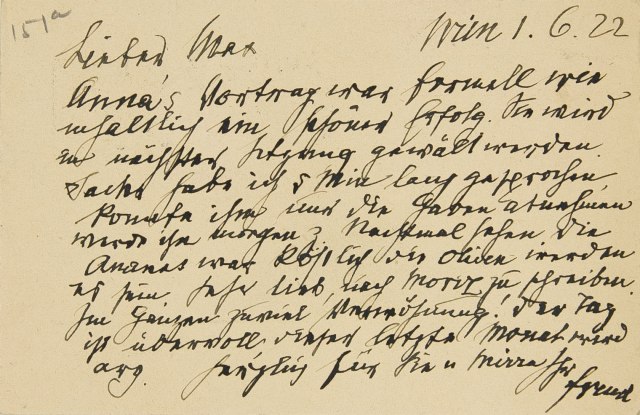 151a
Wien 1. 6. 22
Lieber Max
Anna's Vortrag war formell wie
inhaltlich ein schöner Erfolg. Sie wird
in nächster Sitzung gewält werden.
Sachs habe ich 5 Min lang gesprochen,
konnte ihm nur die Gaben abnehmen
werde ihn morgen z Nachtmal sehen. Die
Ananas war köstlich die Oliven werden
es sein. Sehr lieb, nach Moriz zu schreiben.
Im Ganzen zuviel Verwöhnung! Der Tag
ist übervoll dieser letzte Monat wird
arg. Herzlich für Sie u Mirra Ihr
Freud